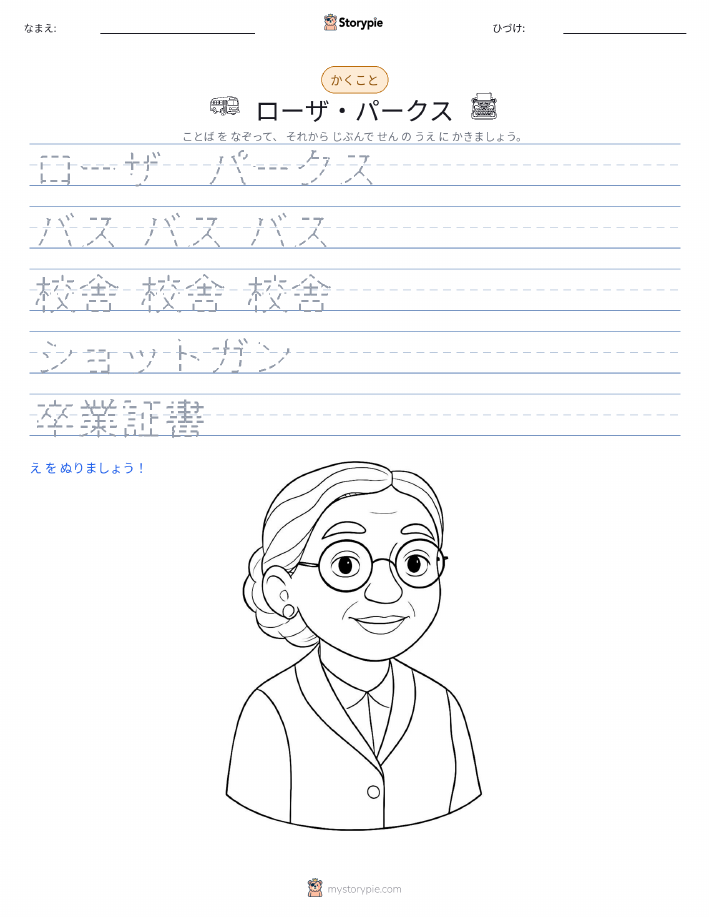 なまえ:
Storypie
ひづけ:
かくこと
ローザ・パークス
ことば を なぞって、 それから じぶんで せん の うえ に かきましょう。
ローザ パークス
バス バス バス
校舎 校舎 校舎
ショットガン
卒業証書
え を ぬりましょう！
mystorypie.com